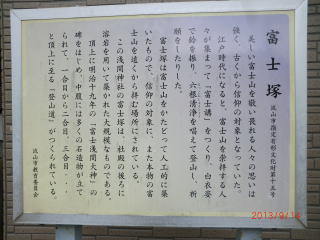 富士塚
流山市指定有形文化財第十五号
美しい富士山を敬い畏れる人々の思いは
強く、古くから信仰の対象となっていた。
江戸時代になると、富士山を崇拝する人
々が集まって「富士講」をつくり、白衣姿
で鈴を振り、六根清浄を唱えて登山し、祈
願をしたりした。
富士塚は富士山をかたどって人工的に築
いたもので、信仰の対象に、また本物の富
士山を遠くから拝む場所にされている。
この浅間神社の富士塚は、社殿の後ろに
溶岩を用いて築かれた大規模なものである。
頂上に明治十九年の「富士浅間大神」の
碑をはじめ、中腹には多くの石造物が立て
られて、一合目から二合目、三合目・・・
と頂上に至る「登山道」がつくられている。
流山市教育委員会
2013/9/14